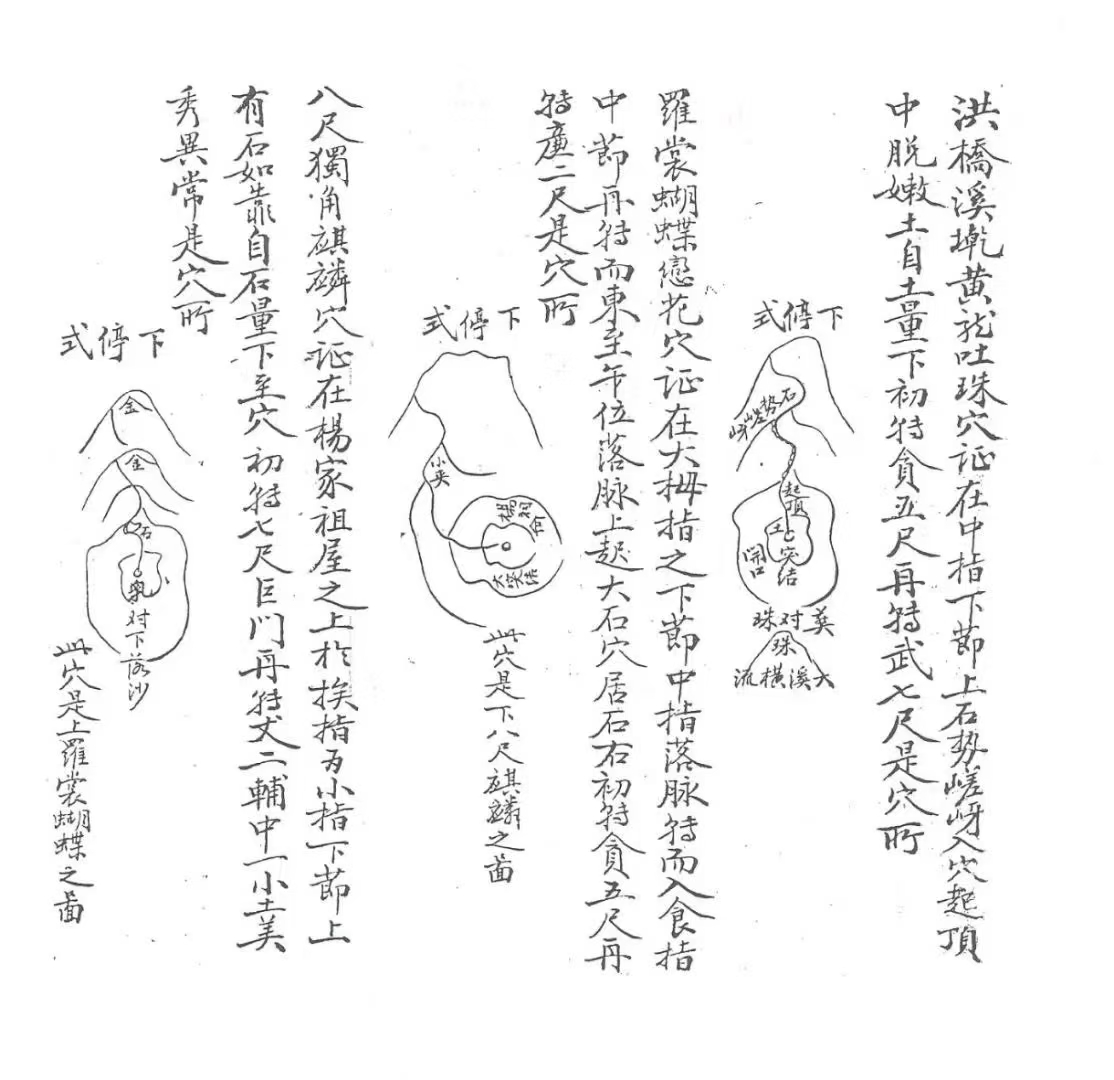 洪橋溪墘黄龍吐珠穴证在中指下節上石势嵯岈入穴起頂
中脱嫩土自土量下初转貪五尺再转武七尺是穴所
下停式
石势嵯岈
起頂
土
突结
開口
莫对珠
珠
大溪横流
羅裳蝴蝶戀花穴证在大拇指之下節中指落脉转而入食指
中節再转而東至午位落脉上起大石穴居石右初转貪五尺再
转廉二尺是穴所
下停式
小夹
大突结
此穴是下八尺麒麟之啚
八尺獨角麒麟穴证在楊家祖屋之上於挨指为小指下節上
有石如靠自石量下至穴初转七尺巨门再转丈二輔中一小土美
秀異常是穴所
下停式
金
金
石
乳
对下落沙
此穴是上羅裳蝴蝶之啚